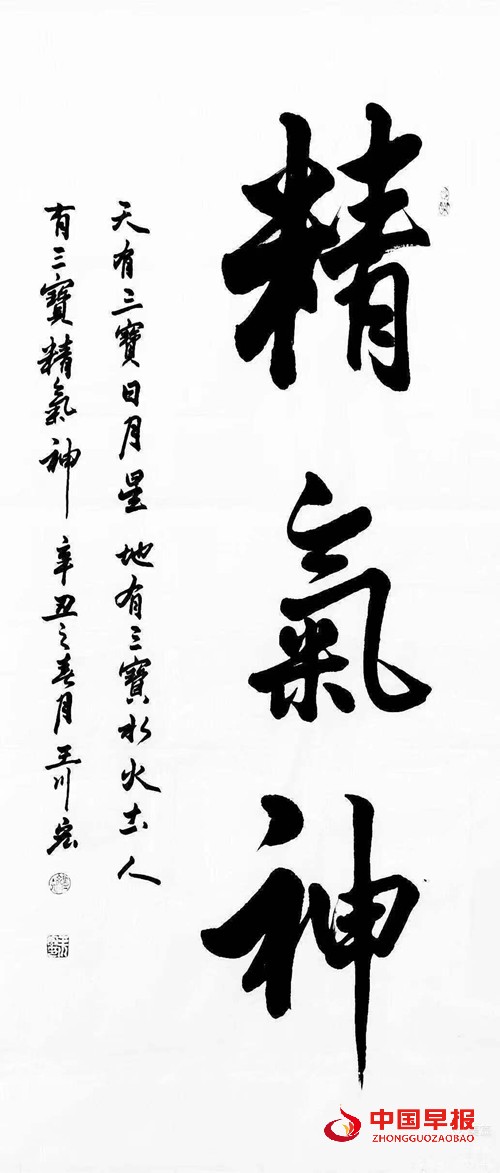 精氣神
天有三寶日月星地有三寶水火土人
有三寶精氣神辛丑之春月王川宏
中国早报
ZHONGGUOZAOBAO